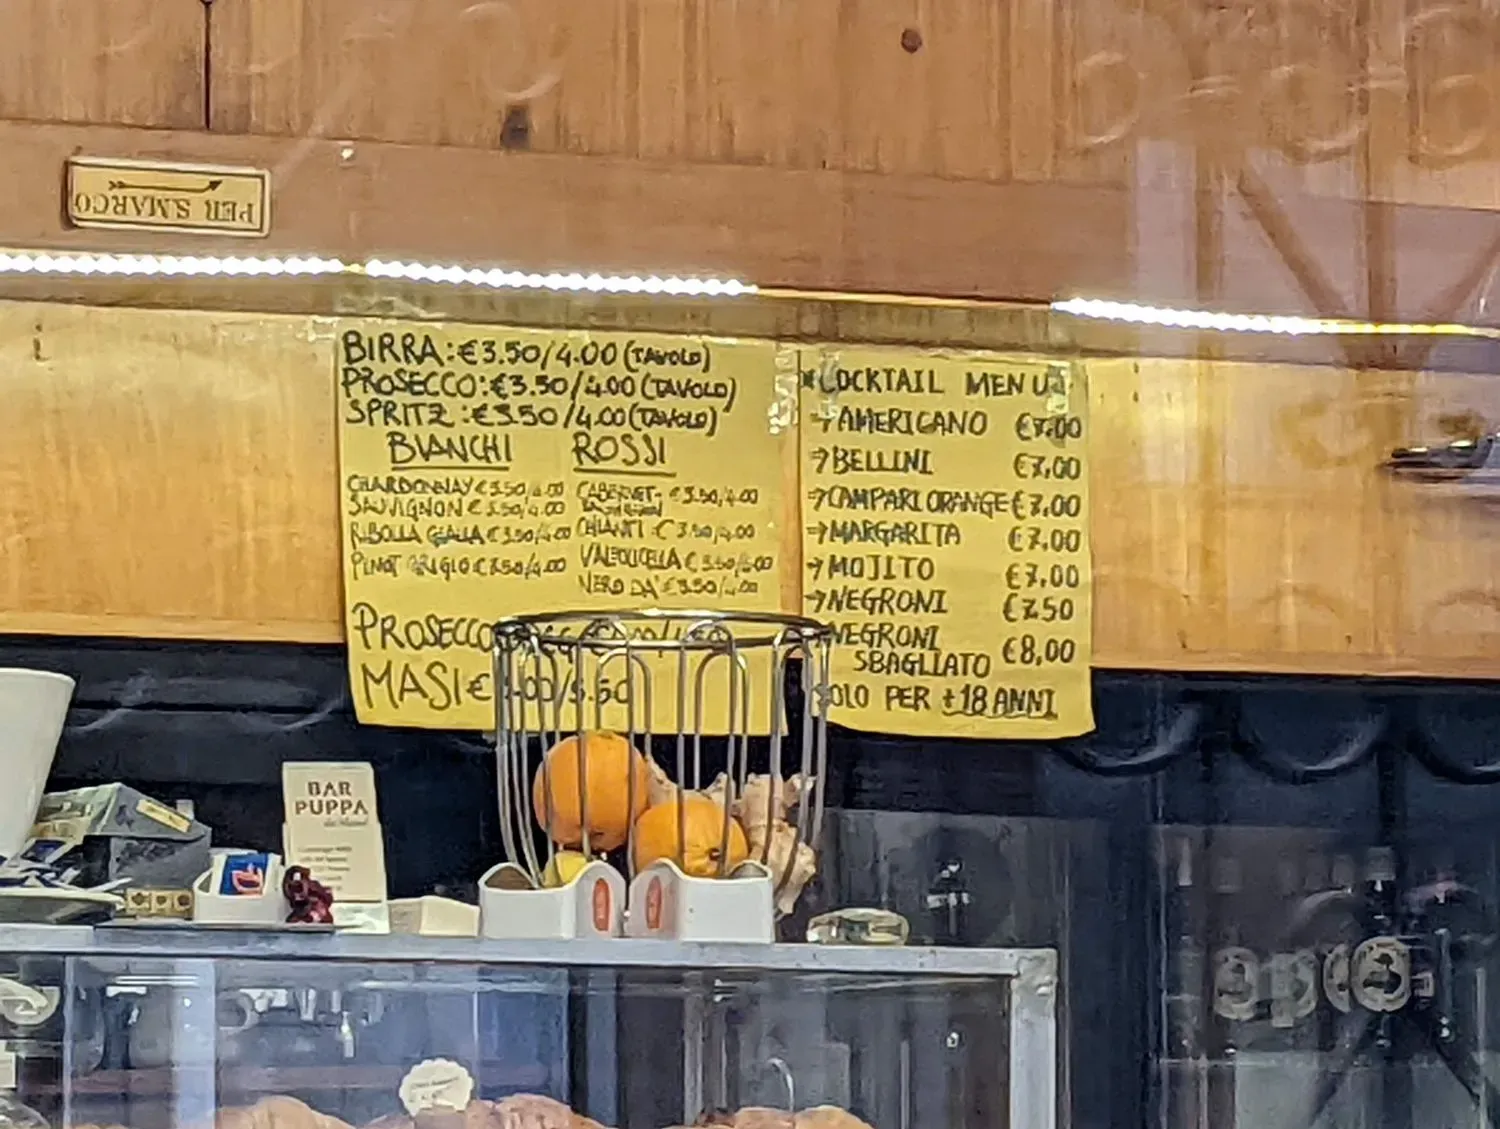 PER S.MARCO
BIRRA: €3.50/4.00 (TAVOLO)
PROSECCO: €3.50/4.00 (TAVOLO)
SPRITZ: €3.50/4.00 (TAVOLO)
BIANCHI
CHARDONNAY € 3.50/4.00
SAUVIGNON € 3.50/4.00
RIBOLLA GIALLA € 3.50/4.00
PINOT GRIGIO € 3.50/4.00
ROSSI
CABERNET € 3.50/4.00
CHIANTI € 3.50/4.00
€ 3.50/4.00
NERO DA' € 3.50/4.00
PROSECCO
MASI € 5.50
COCKTAIL MENU
→AMERICANO €7.00
→BELLINI €7,00
→CAMPARI ORANGE €7,00
→MARGARITA €7.00
→MOJITO €7,00
→NEGRONI €7.50
NEGRONI
SBAGLIATO €8,00
SOLO PER +18 ANNI
BAR
PUPPA